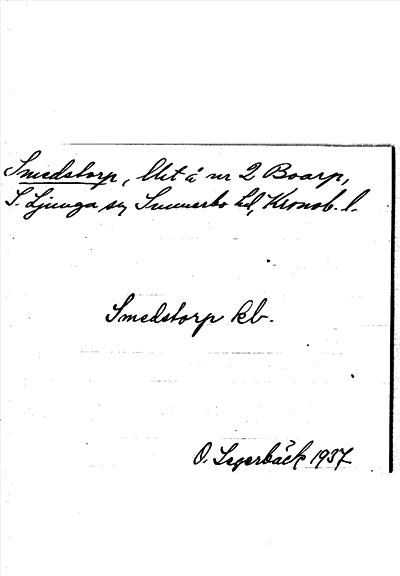 Smedstorp, lht å nr 2 Boarp,
S. Ljunga sn Sunnerbo hd, Kronob. l.
Smedstorp kb.
O. Segerbäck 1937